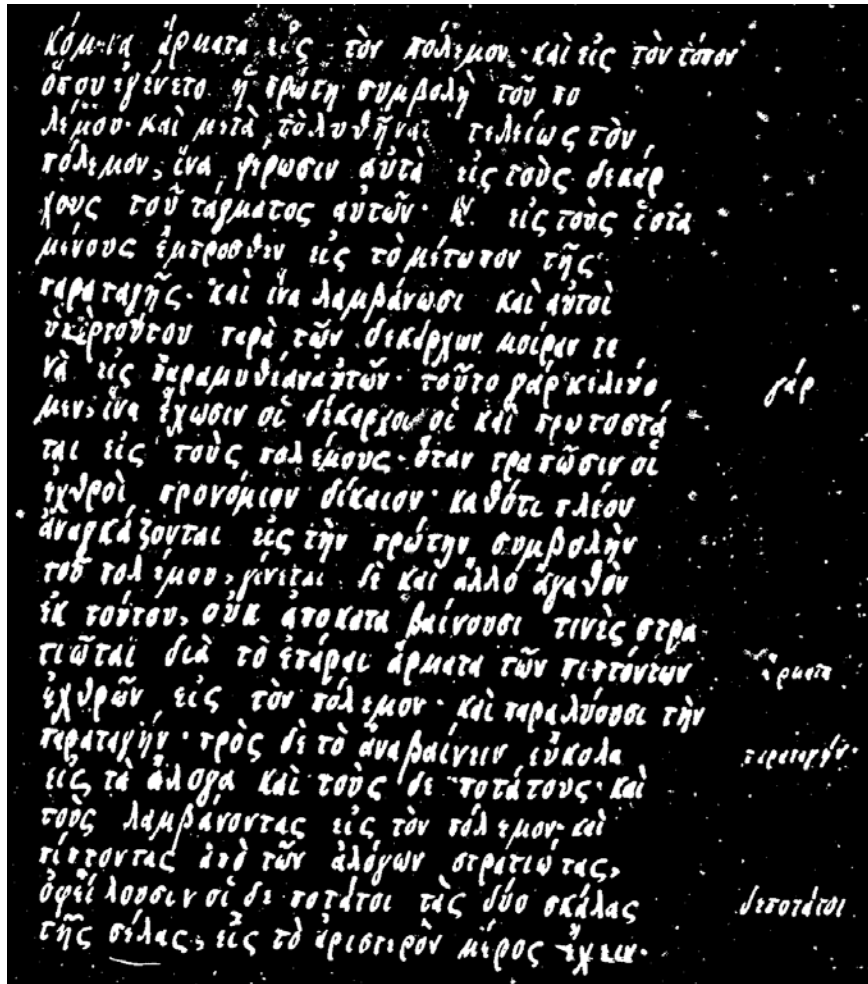 κόμενα ἅρματα εἰς τὸν πόλεμον· καὶ εἰς τὸν τόπον
ὅπου ἐγένετο ἡ πρώτη συμβολὴ τοῦ πο
λέμου· καὶ μετὰ τὸ λυθῆναι τελείως τὸν
πόλεμον, ἵνα φέρωσιν αὐτὰ εἰς τοὺς δεκάρ
χους τοῦ τάγματος αὐτῶν· εἰς τοὺς ἱστα
μένους ἔμπροσθεν εἰς τὸ μέτωπον τῆς
παραταγῆς· καὶ ἵνα λαμβάνωσι καὶ αὐτοὶ
ὑπὲρ τούτου παρὰ τῶν δεκάρχων μοίραν τι
νὰ εἰς παραμυθίαν αὐτῶν· τοῦτο γάρ κελεύο γάρ
μεν, ἵνα ἔχωσιν οἱ δέκαρχοι οἱ καὶ πρωτοστά
ται εἰς τοὺς πολέμους· ὅταν τραπῶσιν οἱ
ἐχθροὶ προνόμιον δίκαιον· καθότι πλέον
ἀναγκάζονται εἰς τὴν πρώτην συμβολὴν
τοῦ πολέμου, γίνεται δὲ καὶ ἄλλο ἀγαθὸν
ἐκ τούτου, οὐκ ἀποκαταβαίνουσι τινὲς στρα
τιῶται διὰ τὸ ἐπάραι ἅρματα τῶν πιπτόντων ἅρματα
ἐχθρῶν εἰς τὸν πόλεμον· καὶ παραλύουσι τὴν
παραταγήν· πρὸς δὲ τὸ ἀναβαίνειν εὔκολα παραταγήν·
εἰς τὰ ἄλογα καὶ τοὺς δεποτάτους· καὶ
τοὺς λαμβάνοντας εἰς τὸν πόλεμον· καὶ
πίπτοντας ἀπὸ τῶν ἀλόγων στρατιώτας,
ὀφείλουσιν οἱ δεποτάτοι τὰς δύο σκάλας δεποτάτοι
τῆς σέλας, εἰς τὸ ἀριστερὸν μέρος ἔχειν·